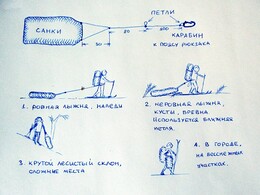 ПЕТЛИ
САНКИ
КАРАБИН
К ПОЯСУ РЮКЗАКА
50
20
400
1. РОВНАЯ ЛЫЖНЯ, НАЛЕДИ
2. НЕРОВНАЯ ЛЫЖНЯ,
КУСТЫ, БРЕВНА
ИСПОЛЬЗУЕТСЯ БЛИЖНЯЯ
ПЕТЛЯ
3. КРУТОЙ ЛЕСИСТЫЙ СКЛОН,
СЛОЖНЫЕ МЕСТА
4. В ГОРОДЕ,
НА БЕССНЕЖНЫХ
УЧАСТКАХ.